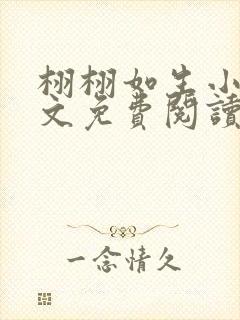 栩栩如生小
文免费阅讀
一念情久